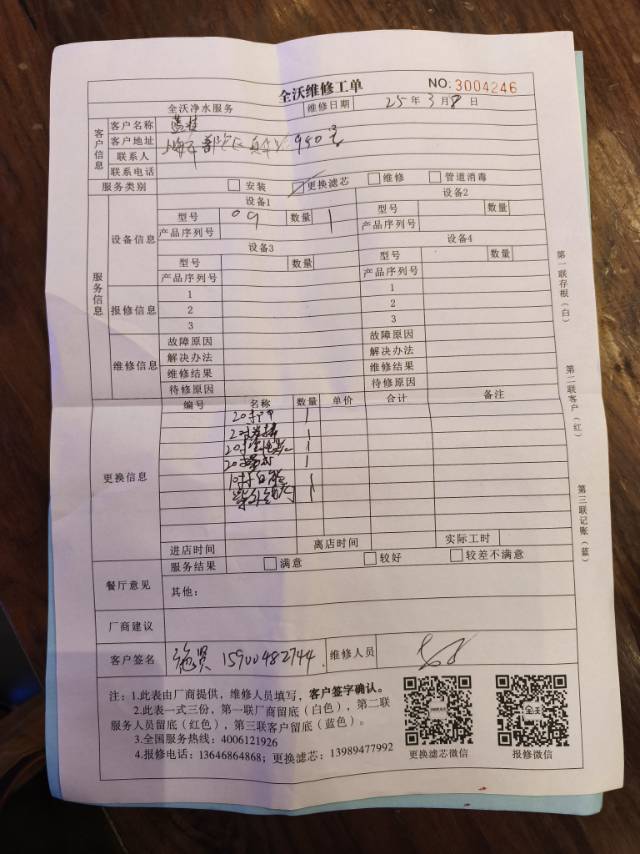 全沃维修工单 NO: 3004246
全沃净水服务 维修日期 25年3月8日
客户信息
客户名称
客户地址 980号
联系人
联系电话
服务类别 安装 更换滤芯 维修 管道消毒
服务信息
设备信息
设备1 设备2
型号 09 数量 1 型号 数量
产品序列号 产品序列号
设备3 设备4
型号 数量 型号 数量
产品序列号 产品序列号
报修信息
1 1
2 2
3 3
维修信息
故障原因 故障原因
解决办法 解决办法
维修结果 维修结果
待修原因 待修原因
更换信息
编号 名称 数量 单价 合计 备注
20寸 1
20寸 1
20寸 1
20寸 1
10寸 1
紫外 1
进店时间 离店时间 实际工时
餐厅意见
服务结果 满意 较好 较差不满意
其他:
厂商建议
客户签名 15900482744 维修人员
注:1.此表由厂商提供,维修人员填写,客户签字确认。
2.此表一式三份,第一联厂商留底(白色),第二联
服务人员留底(红色),第三联客户留底(蓝色)。
3.全国服务热线:4006121926
4.报修电话:13646864868;更换滤芯:13989477992
更换滤芯微信 报修微信
全沃
第一联存根(白)
第二联客户(红)
第三联记账(蓝)